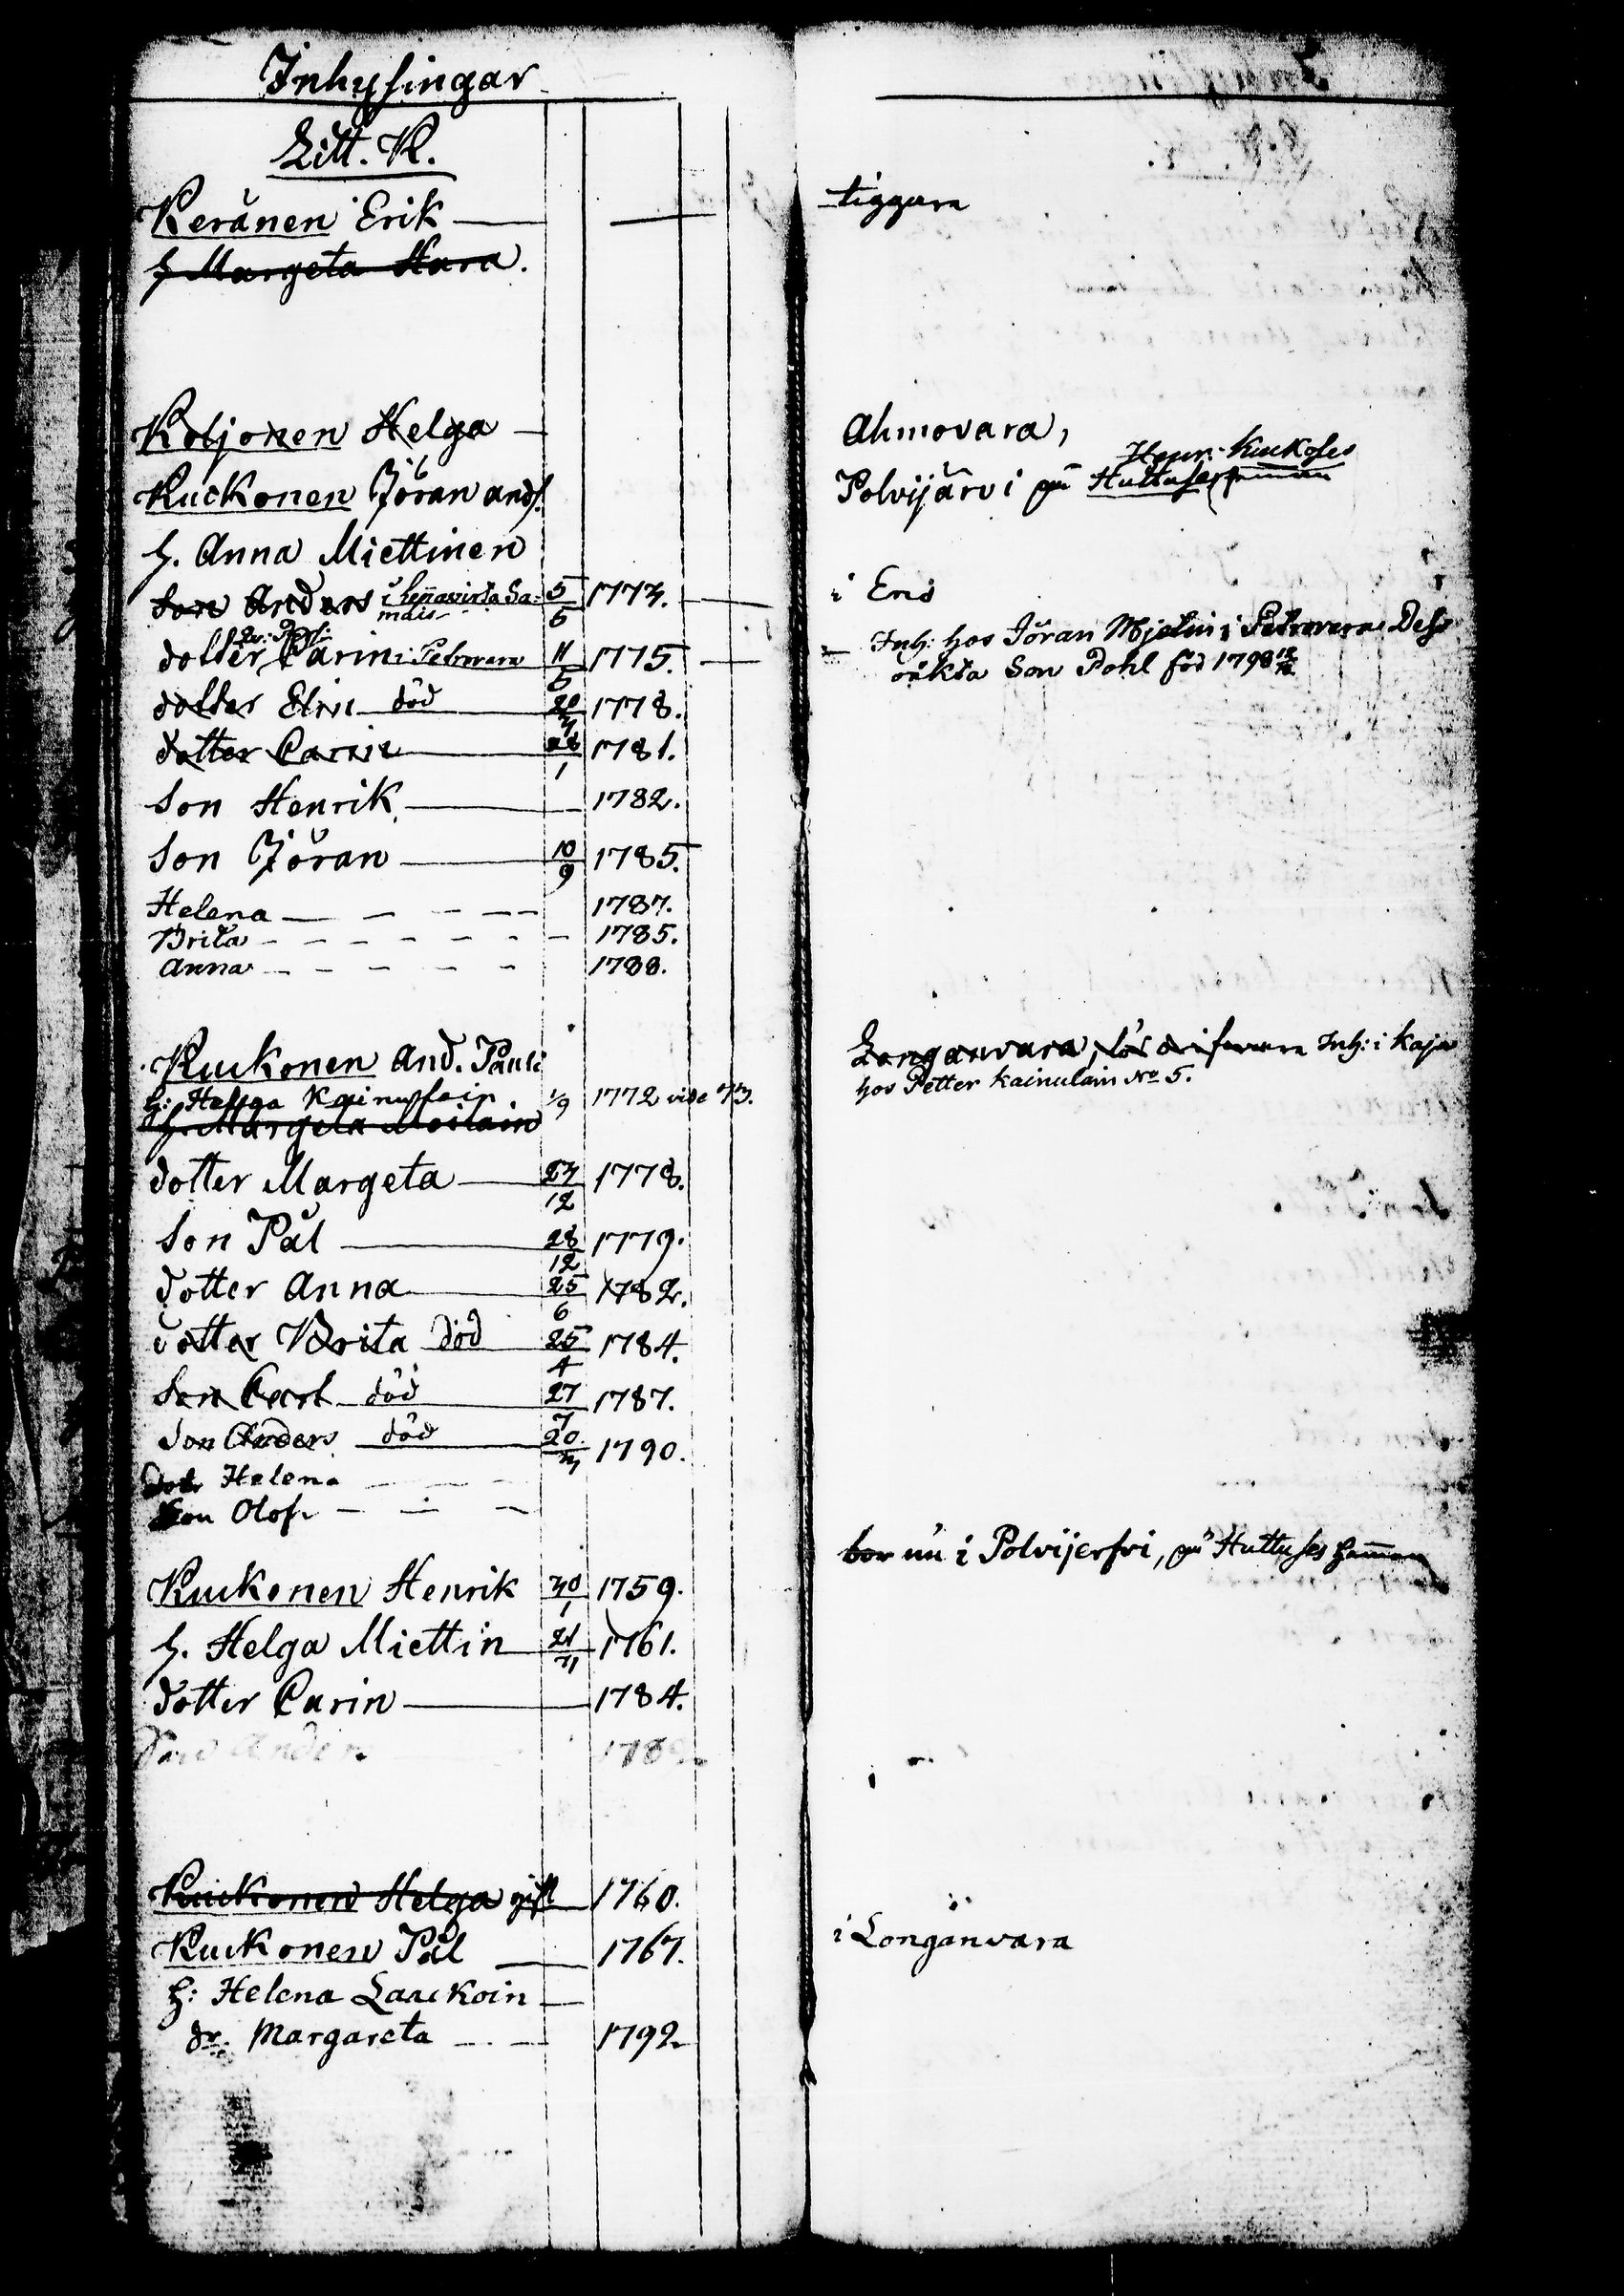 Inhysingar
Litt. K.
Keränen Erik tiggare
h Margeta Hara.
Koljonen Helga Ahmovara,
Henr. Kuckoses
Kuckonen Jöran ands. Polvijärvi på Huttuses
h. Anna Miettinen
Son Anders i 5/6 1773. i Eno
dotter Carin i Petrovara 11/6 1775. Inh: hos Jöran Mjelin i Petrovara Dess
oäkta Son Pohl föd 1798
dotter Elin död 20/3 1778.
dotter Carin 28/1 1781.
Son Henrik 1782.
Son Jöran 10/9 1785.
Helena 1787.
Brita 1785.
Anna 1788.
Kuckonen And. Pauli Longanvara, Inh: i Kaja
h: Helga Kainulain 1/9 1772 vide 73. hos Petter Kainulain No 5.
h. Margeta Moilain
dotter Margeta 23/12 1778.
Son Pål 28/12 1779.
dotter Anna 25/6 1782.
dotter Brita död 25/4 1784.
Son Carl död 27/7 1787.
Son Anders död 20/3 1790.
Helena
Son Olof
bor nu i Polvijerfvi, på Huttuses
Kuckonen Henrik 30/1 1759.
h. Helga Miettin 21/11 1761.
dotter Carin 1784.
Anders
Kuckonen Helga gift 1760.
Kuckonen Pål 1767. i Longanvara
h: Helena Laackoin
dr. Margareta 1792